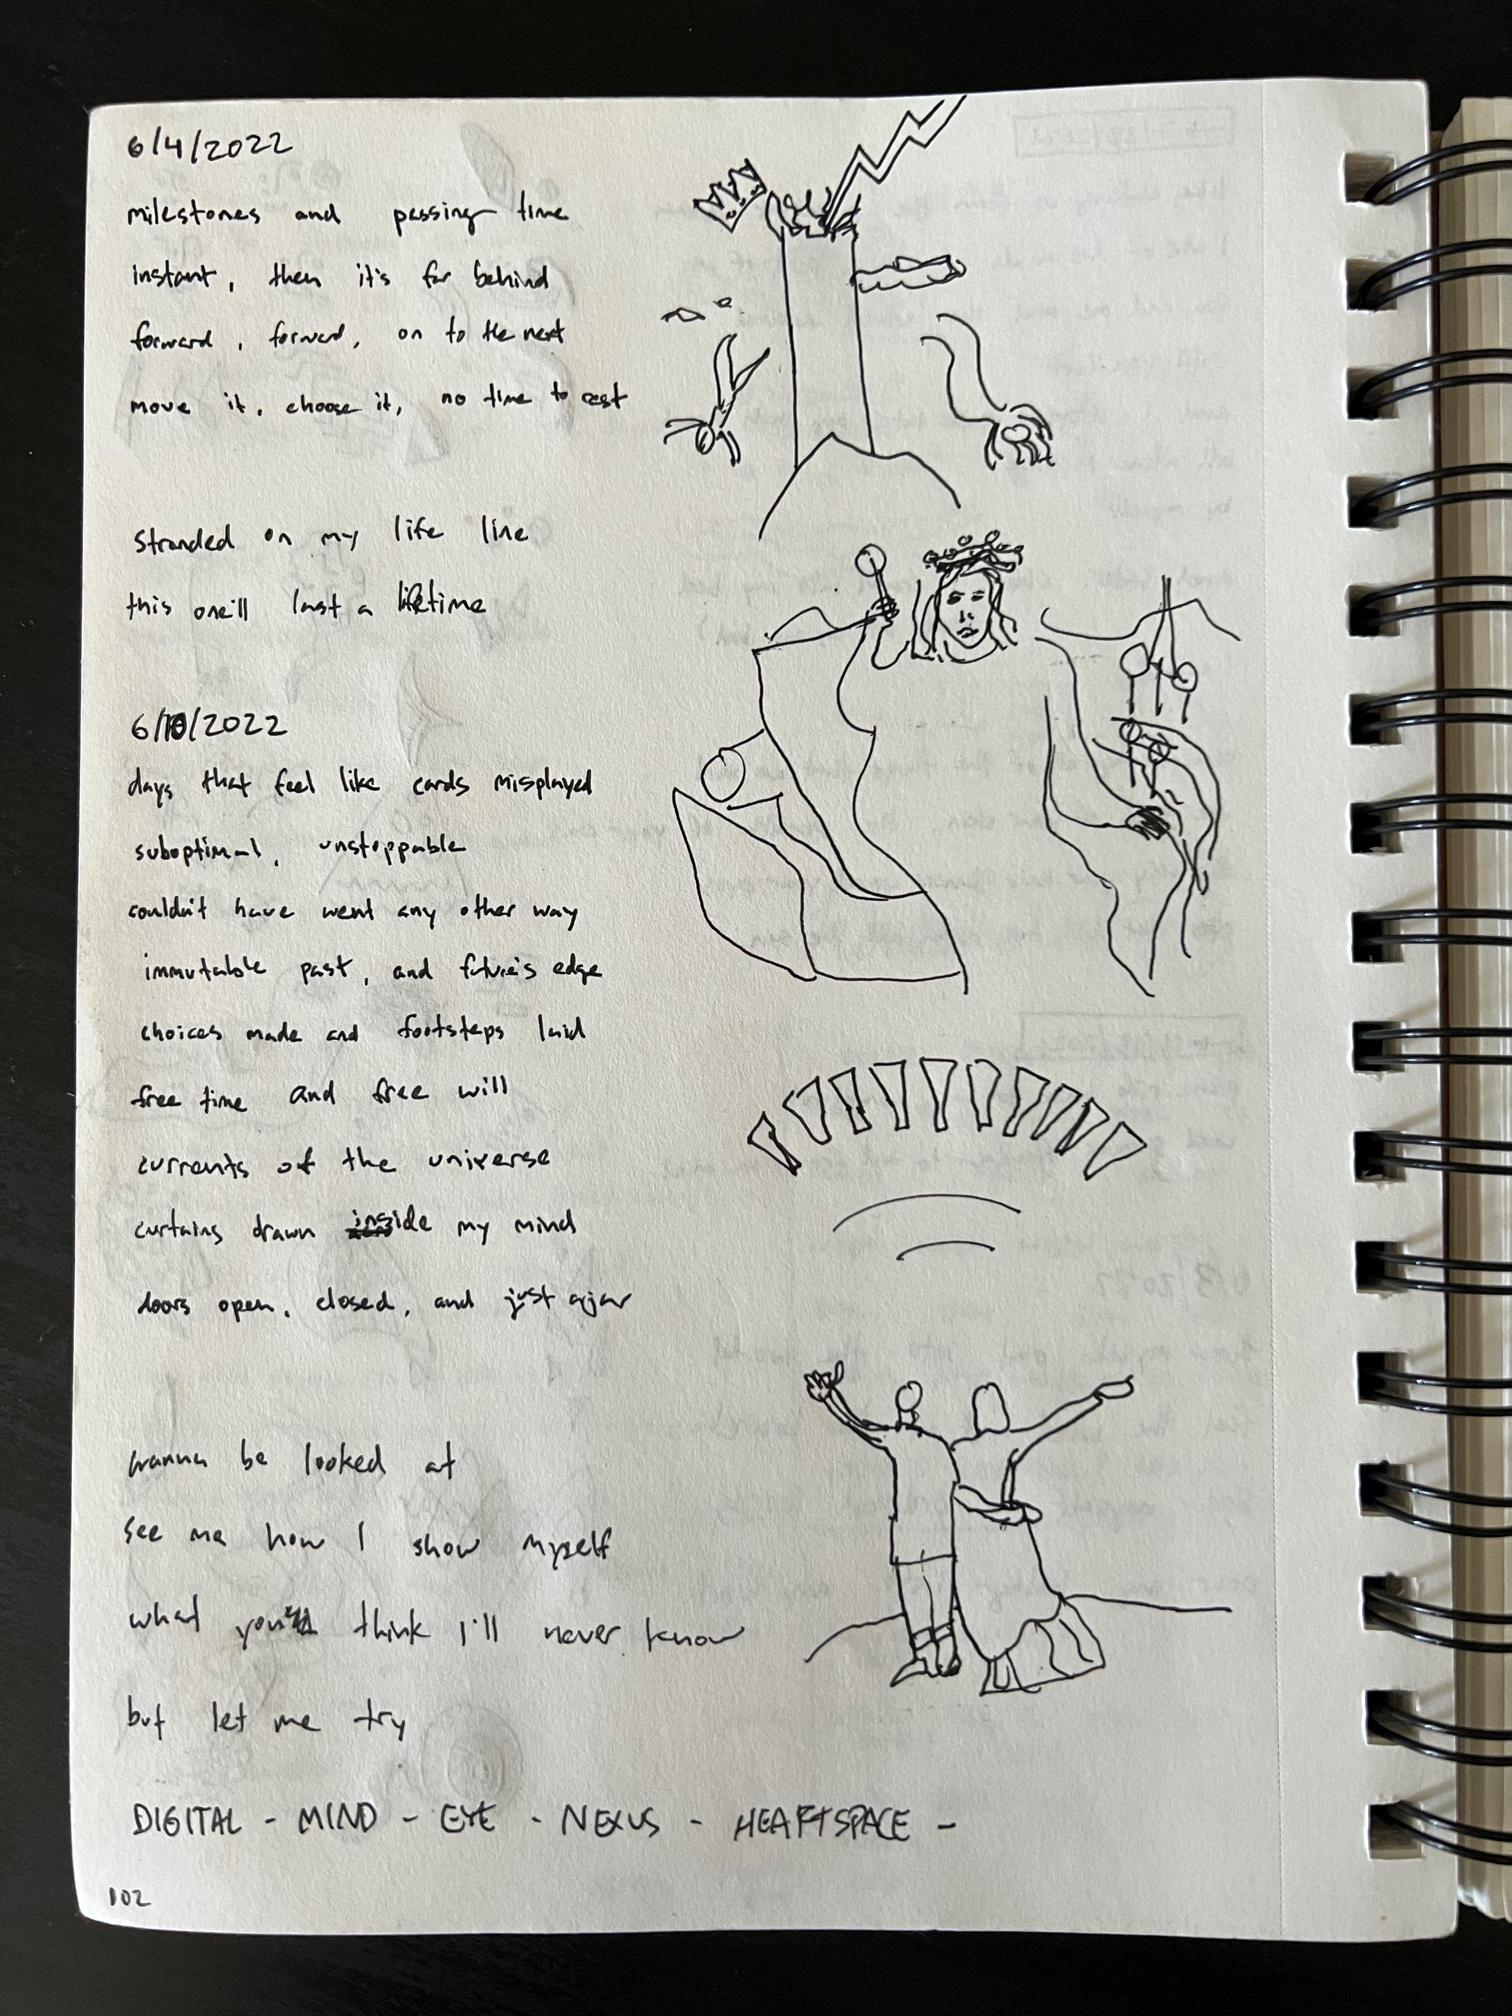 6/4/2022
milestones and passing time
instant, then it's far behind
forward, forward, on to the next
move it, choose it, no time to rest
stranded on my life line
this one'll last a lifetime
6/10/2022
days that feel like cards misplayed
suboptimal, unstoppable
couldn't have went any other way
immutable past, and future's edge
choices made and footsteps laid
free time and free will
currents of the universe
curtains drawn inside my mind
doors open, closed, and just ajar
wanna be looked at
see me how I show myself
what you'll think I'll never know
but let me try
DIGITAL - MIND - EYE - NEXUS - HEARTSPACE -
102